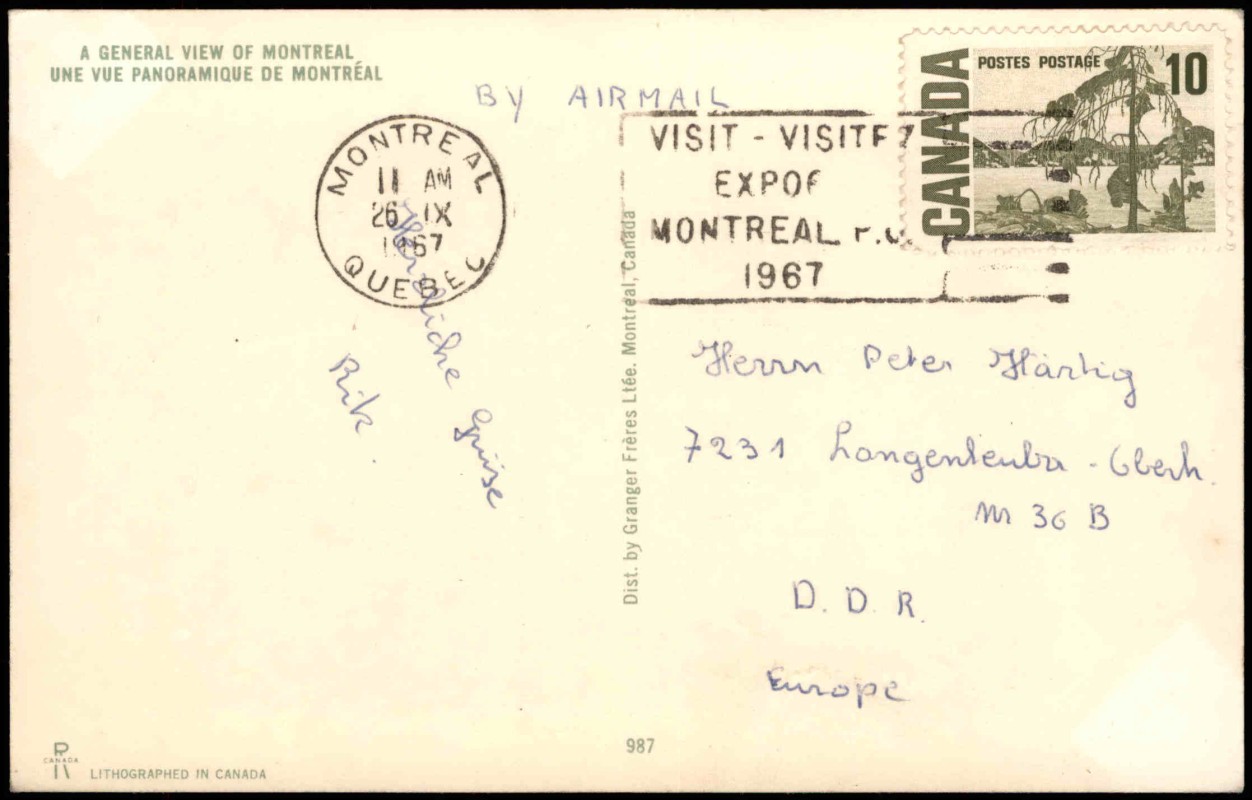 A GENERAL VIEW OF MONTREAL
UNE VUE PANORAMIQUE DE MONTRÉAL
BY AIRMAIL
MONTREAL
11 AM
26 IX
1967
QUEBEC
VISIT - VISITEZ
EXPO
MONTREAL P.Q.
1967
CANADA
POSTES POSTAGE
10
Herzliche Grüsse
Rik
Dist. by Granger Frères Ltée. Montréal, Canada
Herrn Peter Härtig
7231 Langenleuba - Oberh.
Nr 36 B
D. D. R.
Europe
987
CANADA
LITHOGRAPHED IN CANADA